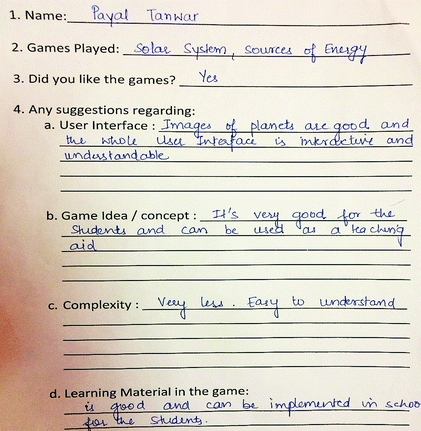 1. Name: Payal Tanwar
2. Games Played: Solar System, Sources of Energy
3. Did you like the games? Yes
4. Any suggestions regarding:
a. User Interface : Images of planets are good and
the whole User Interface is interactive and
understandable
b. Game Idea / concept : It's very good for the
students and can be used as a teaching
aid
c. Complexity : Very less. Easy to understand
d. Learning Material in the game:
is good and can be implemented in schoo
for the students.